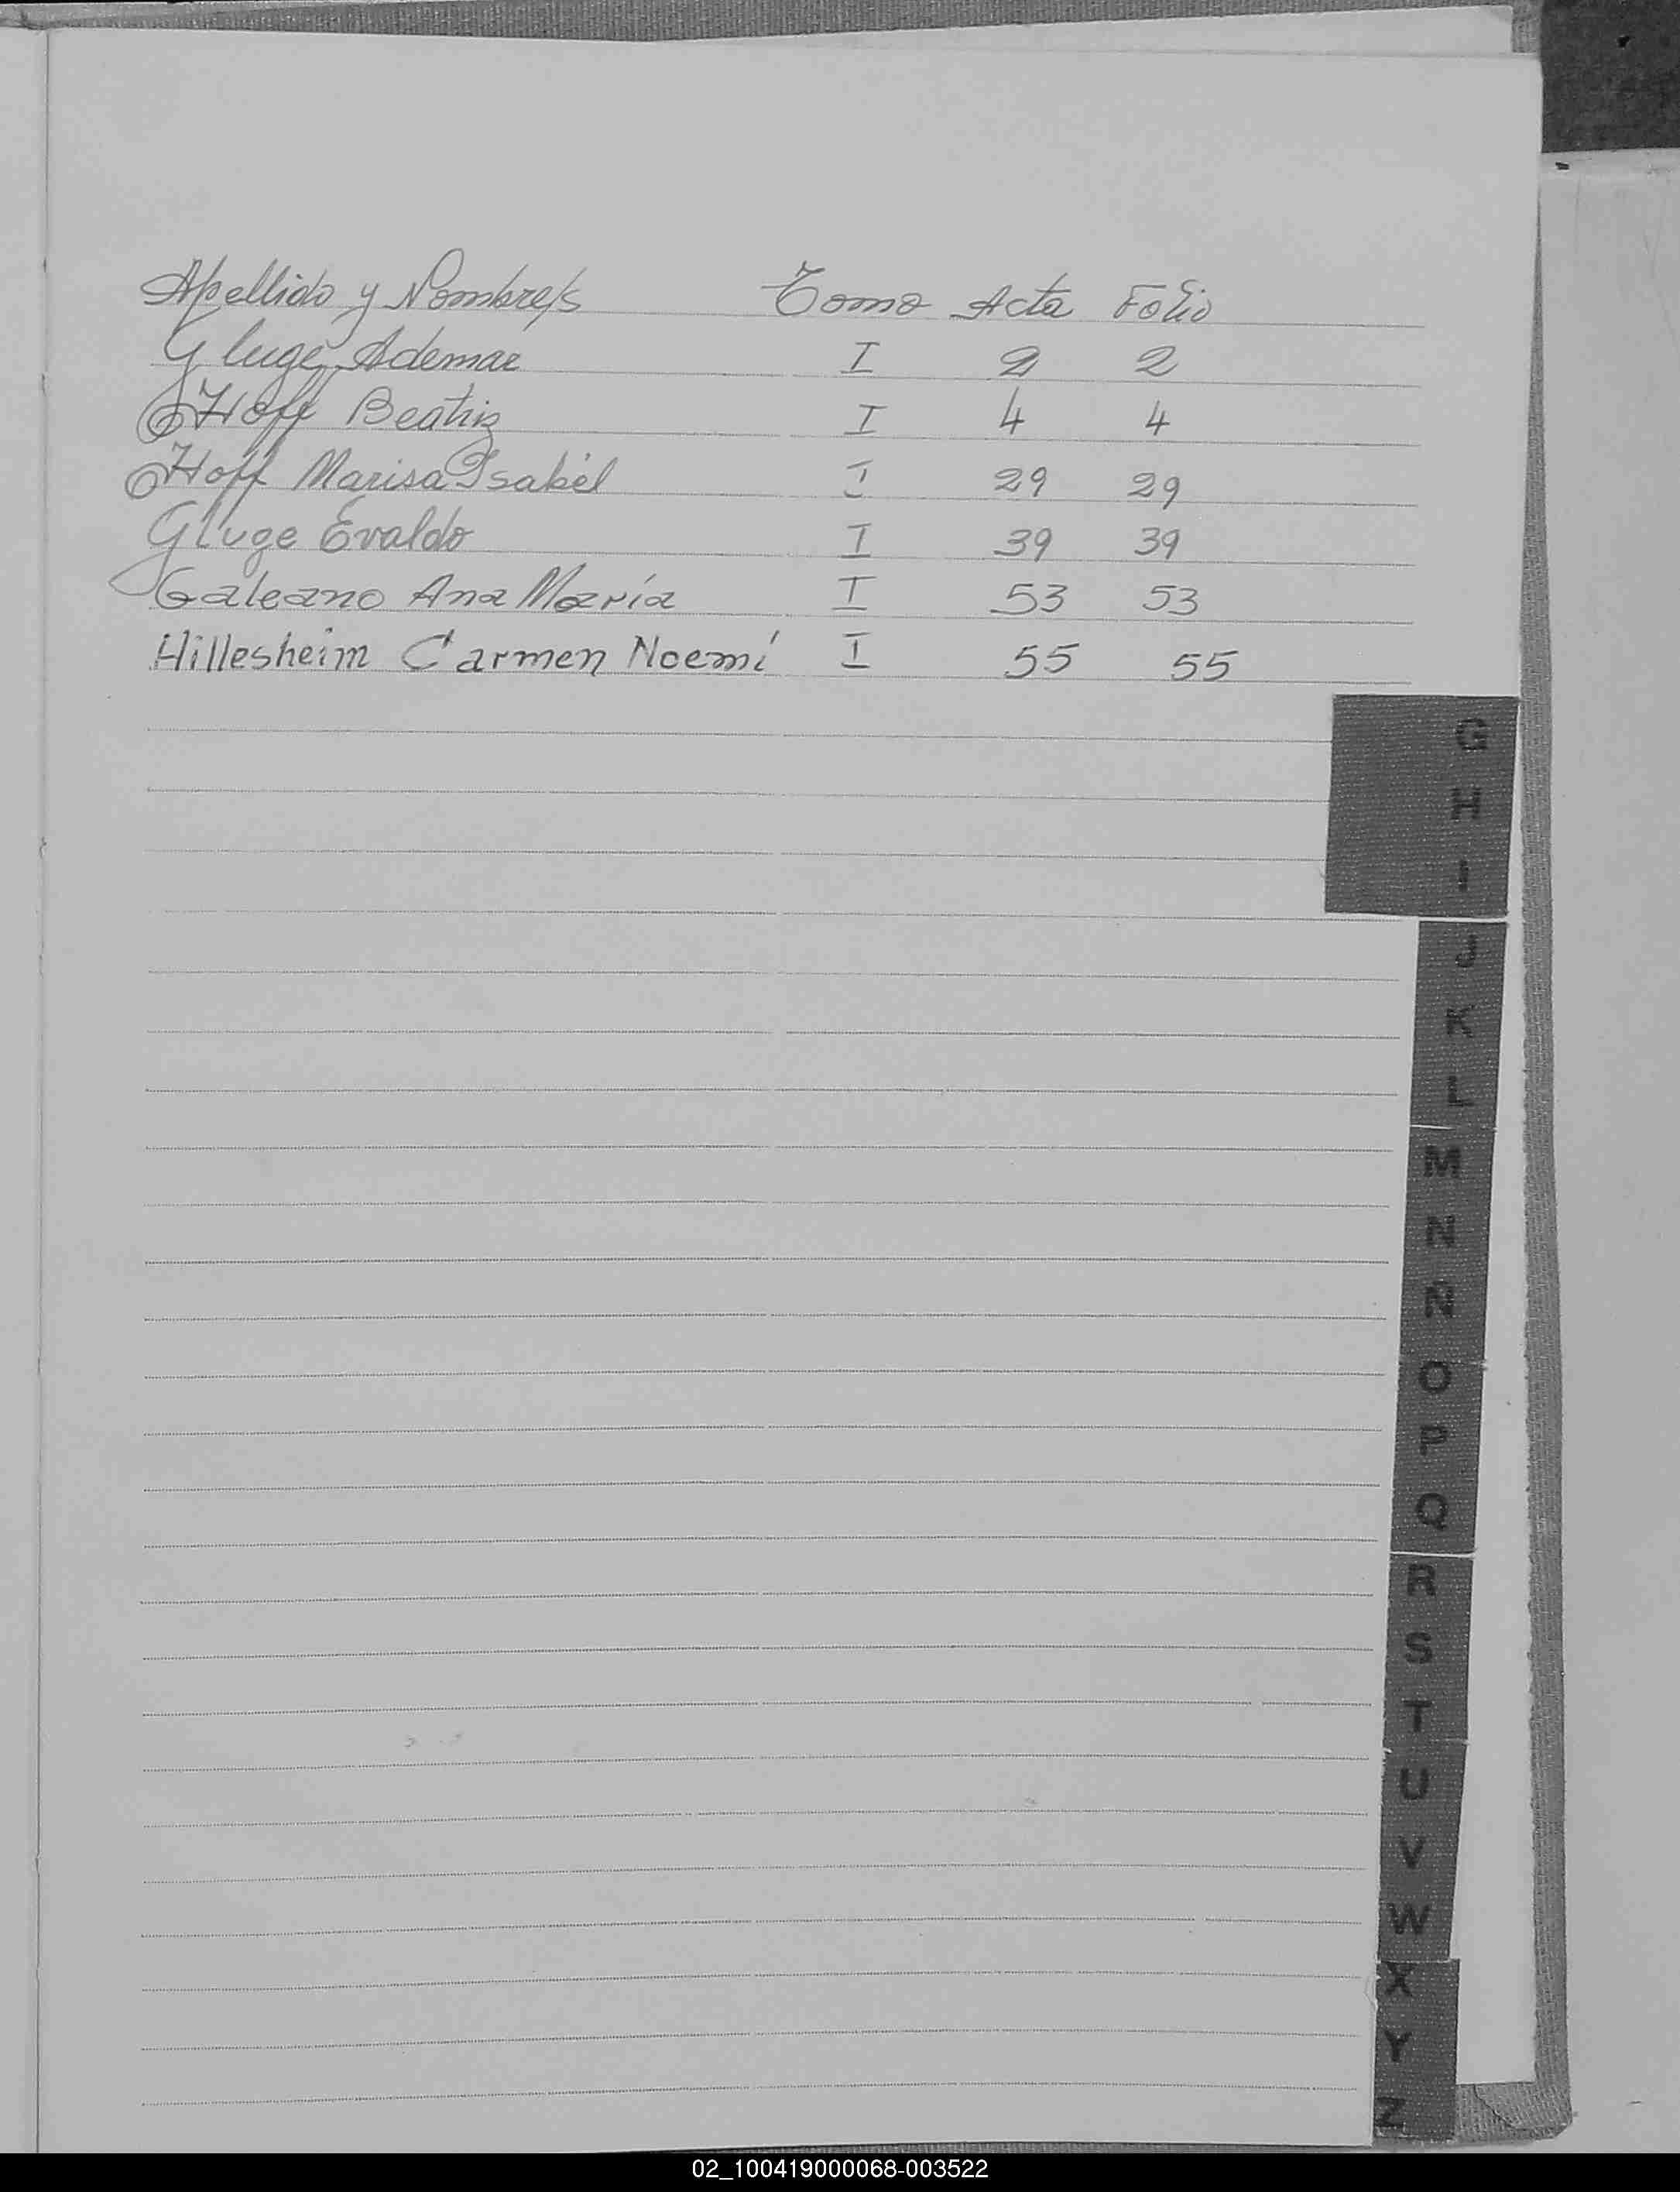 Apellido y Nombre/s Tomo Acta Folio
Gluge, Ademar I 2 2
Hoff Beatriz I 4 4
Hoff Marisa Isabel I 29 29
Gluge Evaldo I 39 39
Galeano Ana María I 53 53
Hillesheim Carmen Noemí I 55 55
G
H
I
J
K
L
M
N
Ñ
O
P
Q
R
S
T
U
V
W
X
Y
Z
02_100419000068-003522